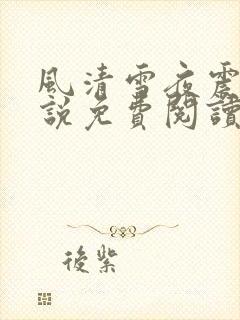 風清雪夜震
說免費閱讀
後紫